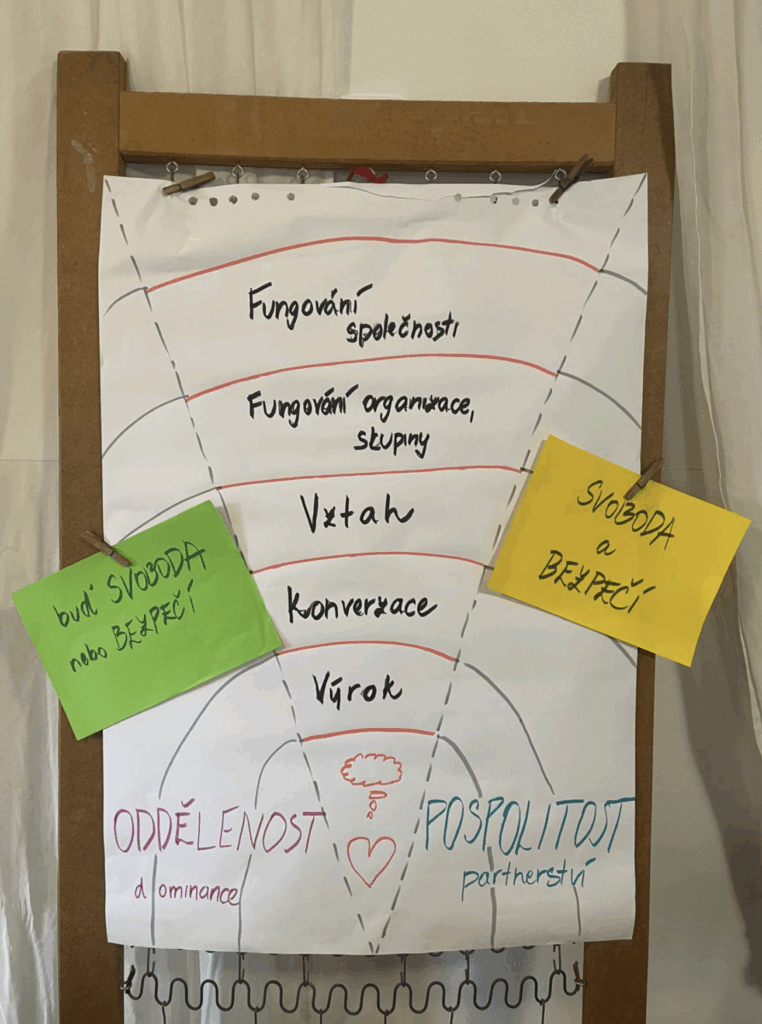 Fungování
společnosti
Fungování organizace,
skupiny
Vztah
Konverzace
Výrok
buď SVOBODA
nebo BEZPEČÍ
SVOBODA
a
BEZPEČÍ
ODDĚLENOST
dominance
POSPOLITOST
partnerství